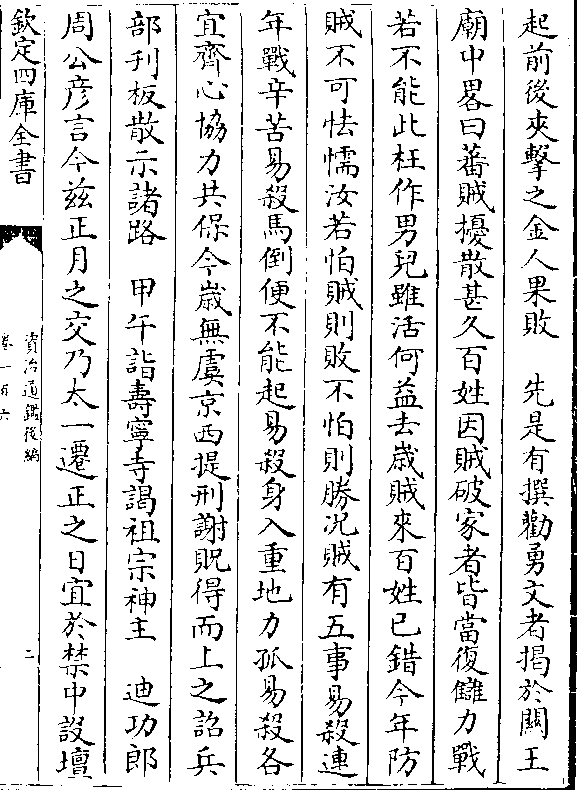 起前後夾擊之金人果敗　先是有撰勸勇文者揭於關王
廟中畧曰蕃賊擾散甚久百姓因賊破家者皆當復讎力戰
若不能此枉作男兒雖活何益去歲賊來百姓已錯今年防
賊不可怯懦汝若怕賊則敗不怕則勝况賊有五事易殺連
年戰辛苦易殺馬倒便不能起易殺身入重地力孤易殺各
宜齊心協力共保今歲無虞京西提刑謝貺得而上之詔兵
部刋板散示諸路　甲午詣壽寧寺謁祖宗神主　迪功郎
周公彦言今兹正月之交乃太一遷正之日宜於禁中設壇
欽定四庫全書
資治通鑑後編
卷一百六
二